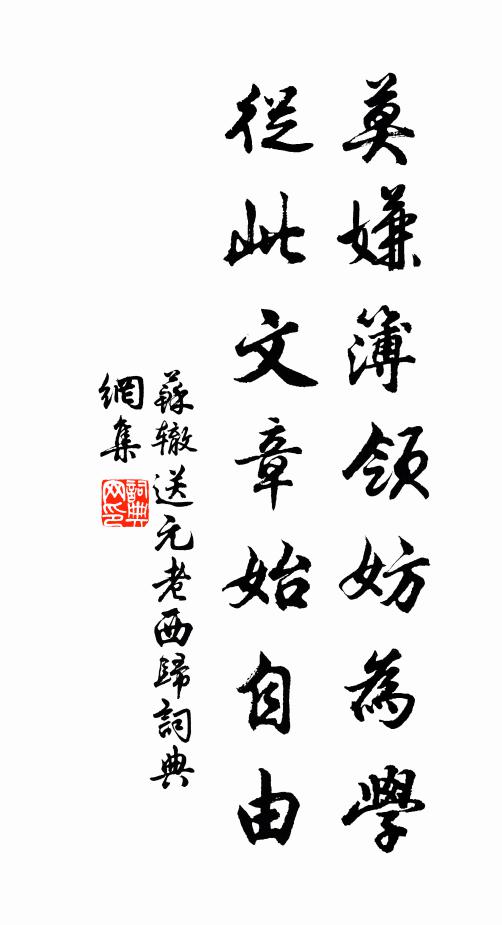 莫嫌簿領妨為學
從此文章始自由
蘇轍送元老西歸詞典
網集
詞典
网印